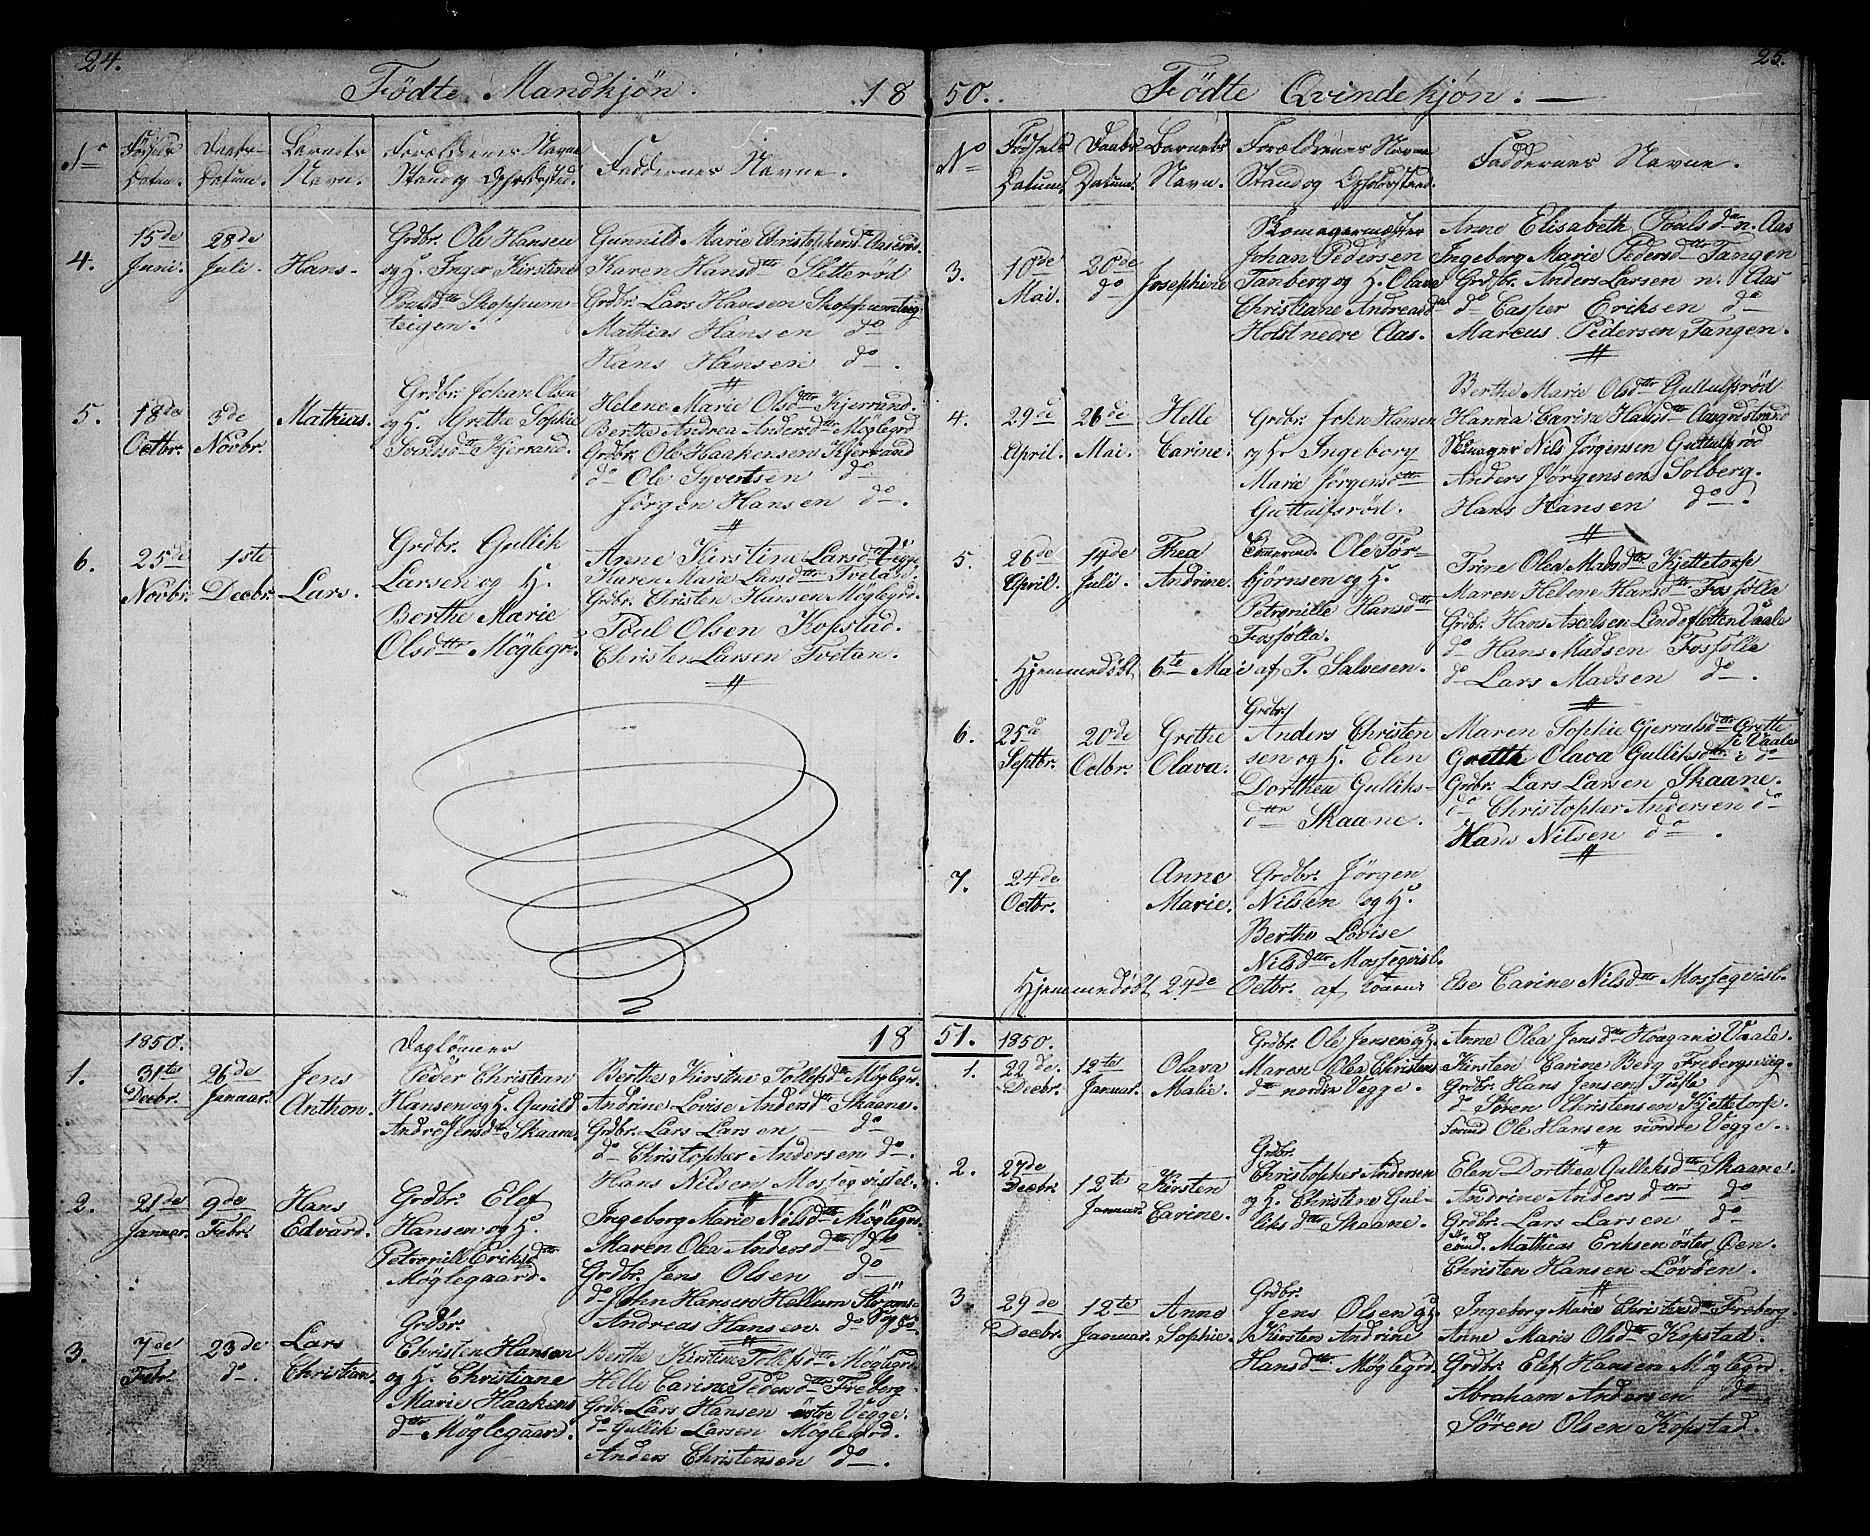 24.
Födte Mandkjön. 18
No
Födsels Datum.
Daabs Datum.
Barnets Navn.
Forældrenes Navne Stand og Opholdssted.
Faddernes Navne.
4.
15de Juni.
28de Juli.
Hans.
Grdbr. Ole Hansen
og H. Inger Kirstine
Poulsdtr Skoppum-
teigen.
Gunnild Marie Christophersd
Karen Hansdtr Sletterød
Grdbr. Lars Hansen Skoppumteig
Mathias Hansen do
Hans Hansen do
5.
18de Octbr.
3de Novbr.
Mathias.
Grdbr. Johan Olsen
og H. Grethe Sophie
Kjerrand.
Helene Marie Olsdtr Kjerrand
Berthe Andrea Andersdtr Möglegrd
Grdbr. Ole Haakensen Kjerrand
do Ole Syvertsen do
Jörgen Hansen do.
6.
25de Novbr.
1ste Decbr.
Lars.
Grdbr. Gullik
Larsen og H.
Berthe Marie
Olsdtr Möglegr.
Anne Kirstine Larsdtr
Karen Marie Larsdtr Tvitan.
Grdbr. Christen Hansen Möglegrd.
Poul Olsen Kopstad.
Christen Larsen Tvitan.
1850. 18
1.
31te Decbr.
26de Januar.
Jens Anthon.
Daglönner
Peder Christian
Hansen og H. Gunild
Andrea Jensdtr Skaane.
Berthe Kirstine Tollefsdtr Möglegrd.
Andrine Lovise Andersdtr Skaane.
Grdbr. Lars Larsen do
do Christopher Andersen do.
Hans Nilsen Mossegvistel.
2.
21de Januar.
9de Febr.
Hans Edvard.
Grdbr. Elef
Hansen og H.
Petronill Eriksdtr
Möglegaard.
Ingeborg Marie Nilsdtr Möglegrd.
Maren Olea Andersdtr do
Grdbr. Jens Olsen do
do John Hansen Hellum
Andreas Hansen. do
3.
7de Febr.
23de do.
Lars Christian.
Grdbr.
Christen Hansen
og H. Christiane
Marie Haakens
dtr Möglegaard.
Berthe Kirstine Tollefsdtr Möglegrd.
Helle Carine Pedersdtr Freberg
Grdbr. Lars Hansen östre Vegge.
do Gullik Larsen Möglegrd.
Anders Christensen do.
25.
50. Födte Qvindekjön.
No
Födsels Datum.
Daabs Datum.
Barnets Navn.
Forældrenes Navne Stand og Opholdssted.
Faddernes Navne.
3.
10de Mai.
20de do
Josephine
Skomagermester
Johan Pedersen
Tanberg og H. Olava
Christiane Andreasdtr
Holst nedre Aas.
Anne Elisabeth Poulsdtr n. Aas
Ingeborg Marie Pedersdtr Tangen
Grdbr. Anders Larsen n. Aas
do Casper Eriksen do
Marcus Pedersen Tangen.
4.
29de April.
26de Mai.
Helle Carine.
Grdbr. John Hansen
og H. Ingeborg
Marie Jörgensdtr
Guttulfsröd.
Berthe Marie Olsdtr Guttulfsröd
Hanna Carine Hansdtr Aasgrdstrand
Skomager Nils Jörgensen Guttulfsröd
Anders Jörgensen Solberg.
Hans Hansen do.
5.
26de April.
14de Juli.
Thea Andrine.
Ole Tor-
björnsen og H.
Petronille Hansdtr
Fosfölla.
Hjemmedöbt 6te Mai af T. Salvesen.
Trine Olea Madsdtr Kjettetorp
Maren Helene Hansdtr Fosfölla
Grdbr. Hans Axelsen Lindeflotten i Vaale
do Hans Madsen Fosfölle
do Lars Madsen do.
6.
25de Septbr.
20de Octbr.
Grethe Olava.
Grdbr.
Anders Christen
sen og H. Elen
Dorthea Gulliks-
dtr Skaane.
Maren Sophie
i Vaale
Grethe Olava Gulliksdtr i do
Grdbr. Lars Larsen Skaane.
do Christopher Andersen do
Hans Nilsen do.
7.
24de Octbr.
Anne Marie.
Grdbr. Jörgen
Nilsen og H.
Berthe Lovise
Nilsdtr Mossegvisl.
Hjemmedöbt 24de Octbr. af
Else Carine Nilsdtr Mossegvisl.
51. 1850.
1.
22de. Decbr.
12te Januar.
Olava Malie.
Grdbr. Ole Jensen og H.
Maren Olea Christens
dtr nordre Vegge.
Anne Olea Jensdtr Haugan i Vaale.
Kirsten Carine Berg Frebergsvig.
Grdbr. Hans Jensen
do Sören Christensen Kjettetorp.
Ole Hansen nordre Vegge.
2.
27de Decbr.
12te Januar.
Kirsten Carine.
Grdbr.
Christopher Andersen
og H. Christine Gul-
liks dtr Skaane.
Elen Dorthea Gulliksdtr Skaane.
Andrine Andersdtr do
Grdbr. Lars Larsen do
Mathias Eriksen öster Öen.
Christen Hansen Lovöen.
3
29de Decbr.
12te Januar.
Anne Sophie.
Grdbr.
Jens Olsen og H.
Kirsten Andrine
Hansdtr Möglegrd.
Ingeborg Marie Christensdtr Freberg.
Anne Marie Olsdtr Kopstad.
Grdbr. Elef Hansen Möglegrd.
Abraham Andersen do
Sören Olsen Kopstad.